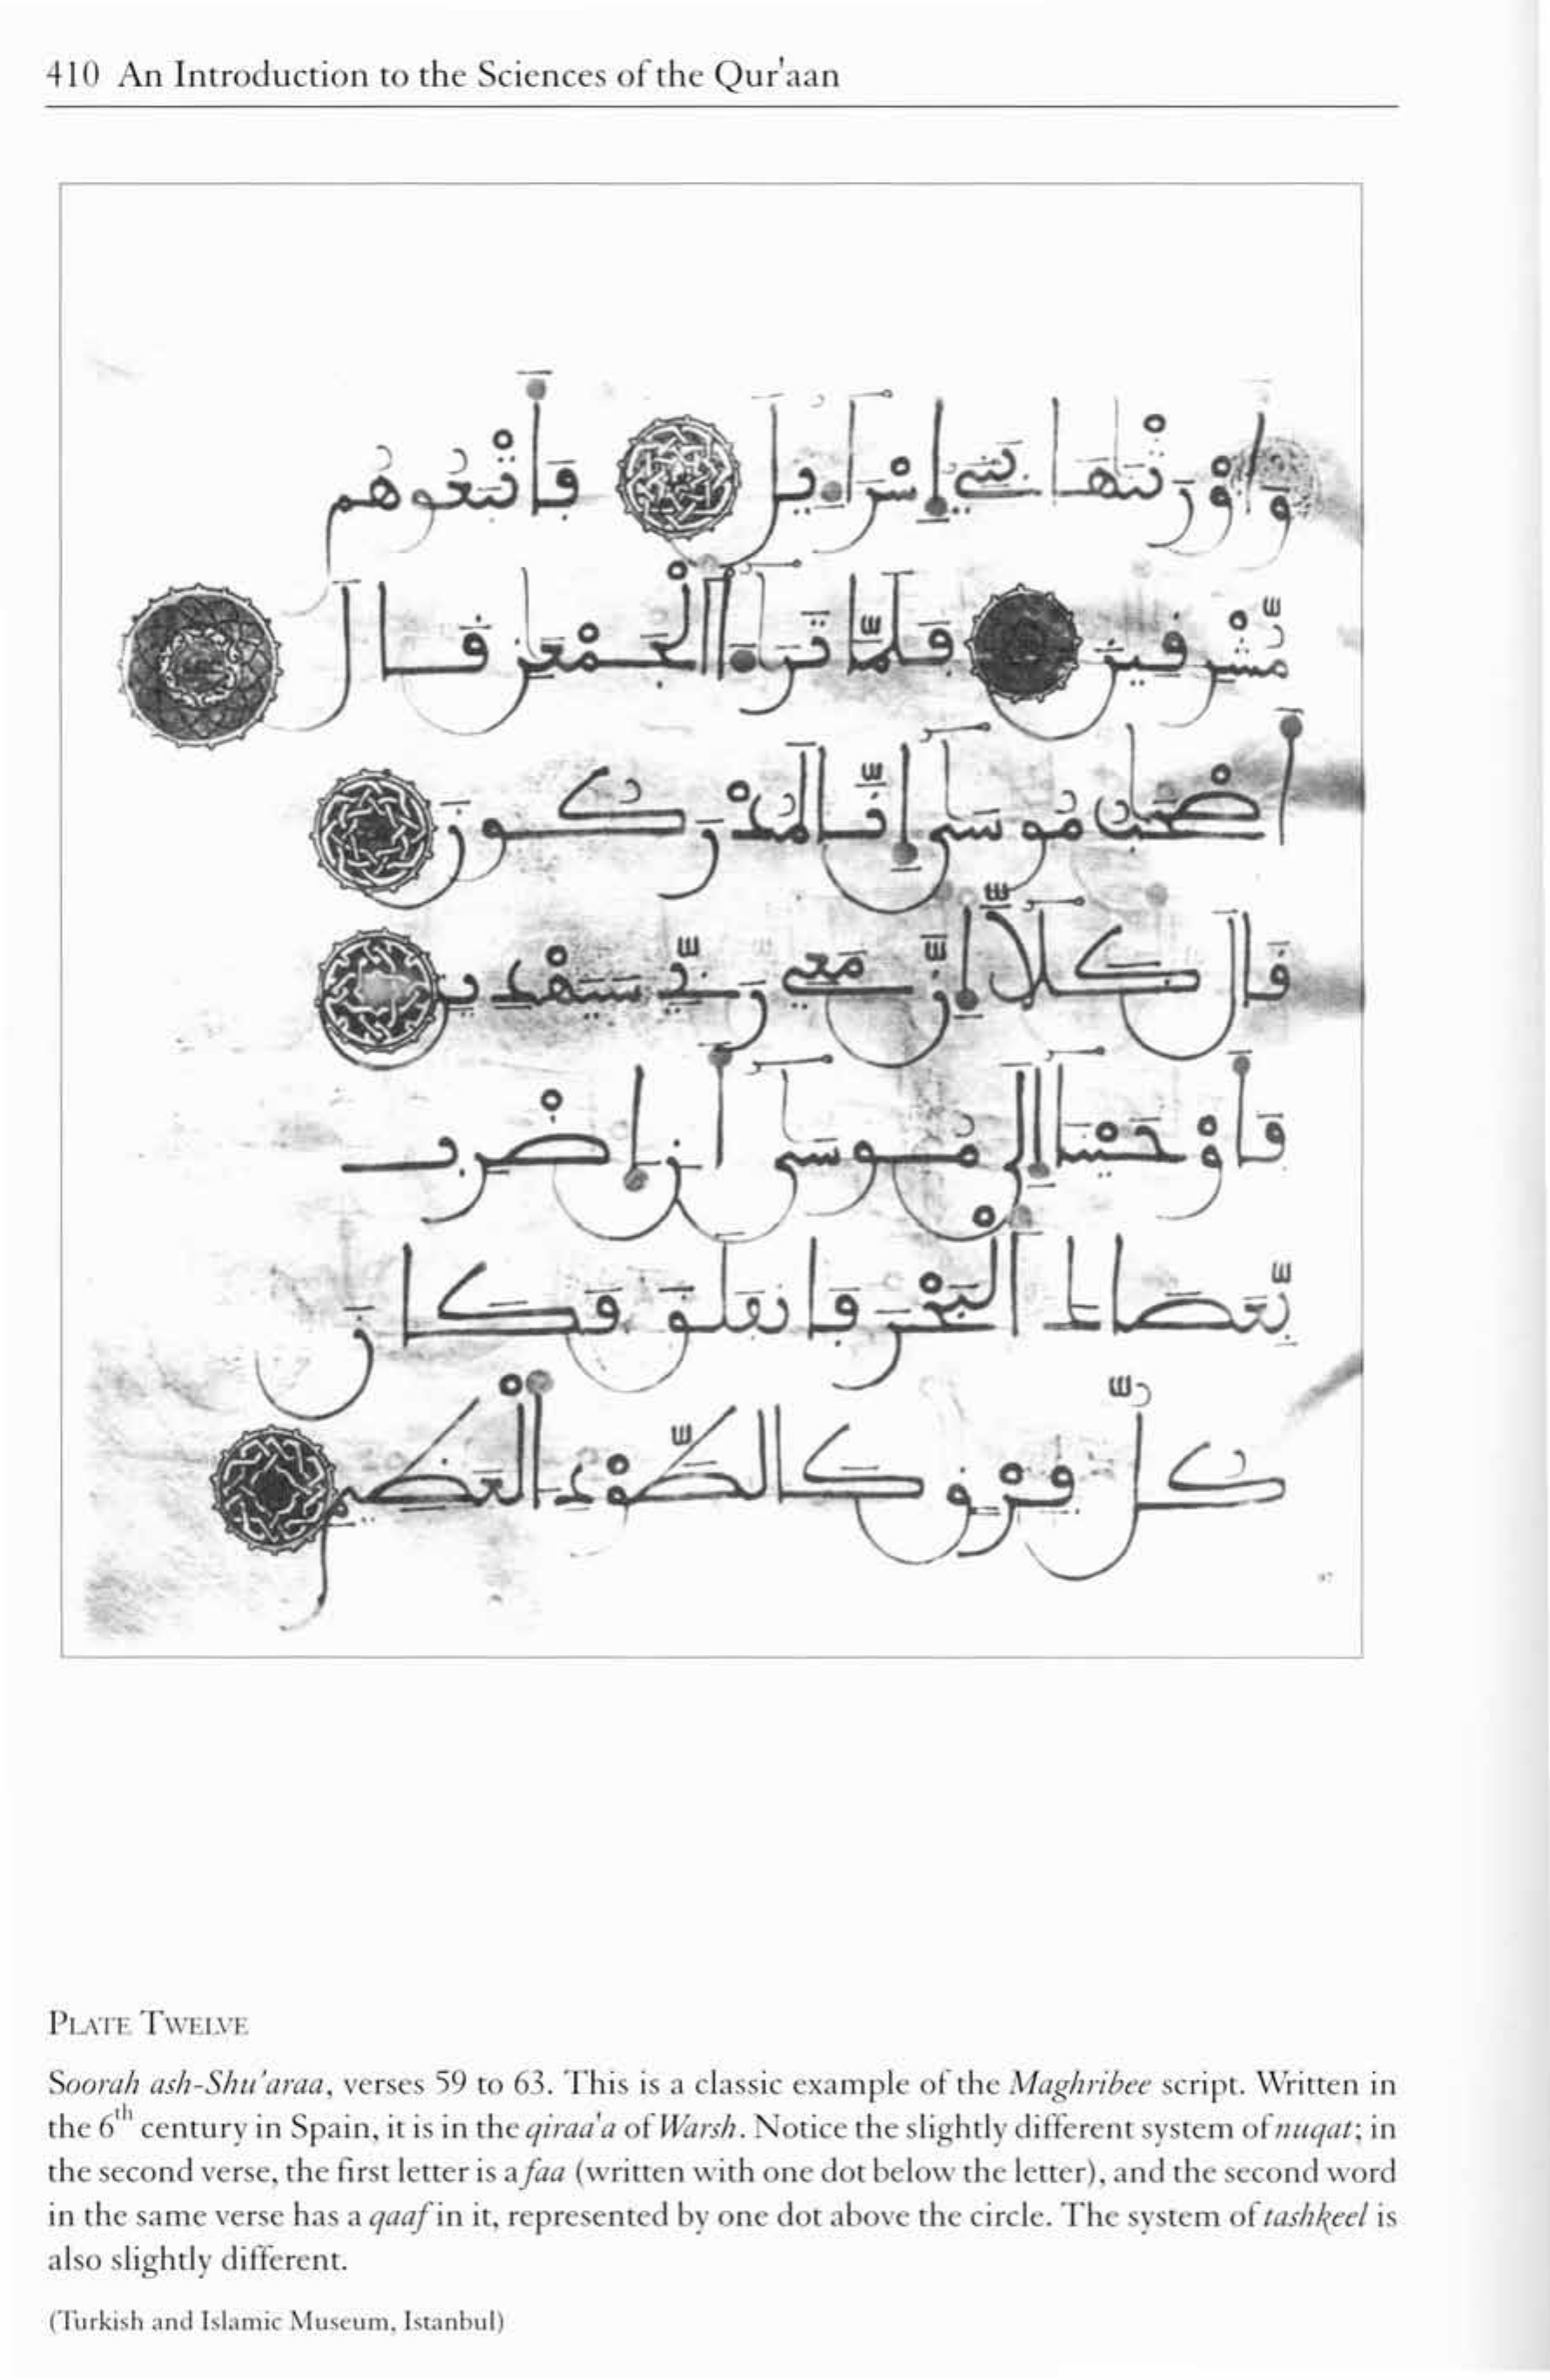 410 An Introduction to the Sciences of the Qur'aan
وَأَوْرَثْنَٰهَا بَنِىٓ إِسْرَآءِيلَ فَأَتْبَعُوهُم
مُّشْرِقِينَ فَلَمَّا تَرَٰٓءَا اَ۬لْجَمْعَٰنِ قَالَ
أَصْحَٰبُ مُوسَىٰٓ إِنَّا لَمُدْرَكُونَ
قَالَ كَلَّآ إِنَّ مَعِي رَبِّي سَيَهْدِينِ
فَأَوْحَيْنَآ إِلَىٰ مُوسَىٰٓ أَنِ اِ۪ضْرِب
بِّعَصَاكَ اَ۬لْبَحْرَ فَانفَلَقَ فَكَانَ
كُلُّ فِرْقٍ كَالطَّوْدِ اِ۬لْعَظِيمِ
PLATE TWELVE
Soorah ash-Shu'araa, verses 59 to 63. This is a classic example of the Maghribee script. Written in
the 6th century in Spain, it is in the qiraa'a of Warsh. Notice the slightly different system of nuqat; in
the second verse, the first letter is a faa (written with one dot below the letter), and the second word
in the same verse has a qaaf in it, represented by one dot above the circle. The system of tashkeel is
also slightly different.
(Turkish and Islamic Museum, Istanbul)